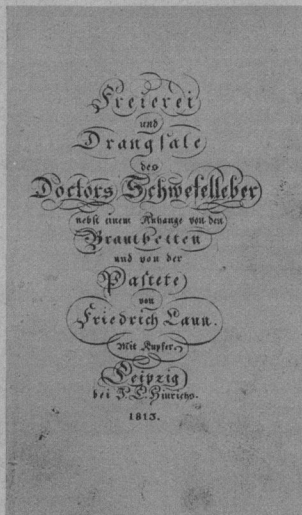 Freierei
und
Drangsale
des
Doctors Schwefelleber
nebst einem Anhange von den
Brautbetten
und von der
Pastete
von
Friedrich Laun.
Mit Kupfer.
Leipzig
bei J. C. Hinrichs.
1813.